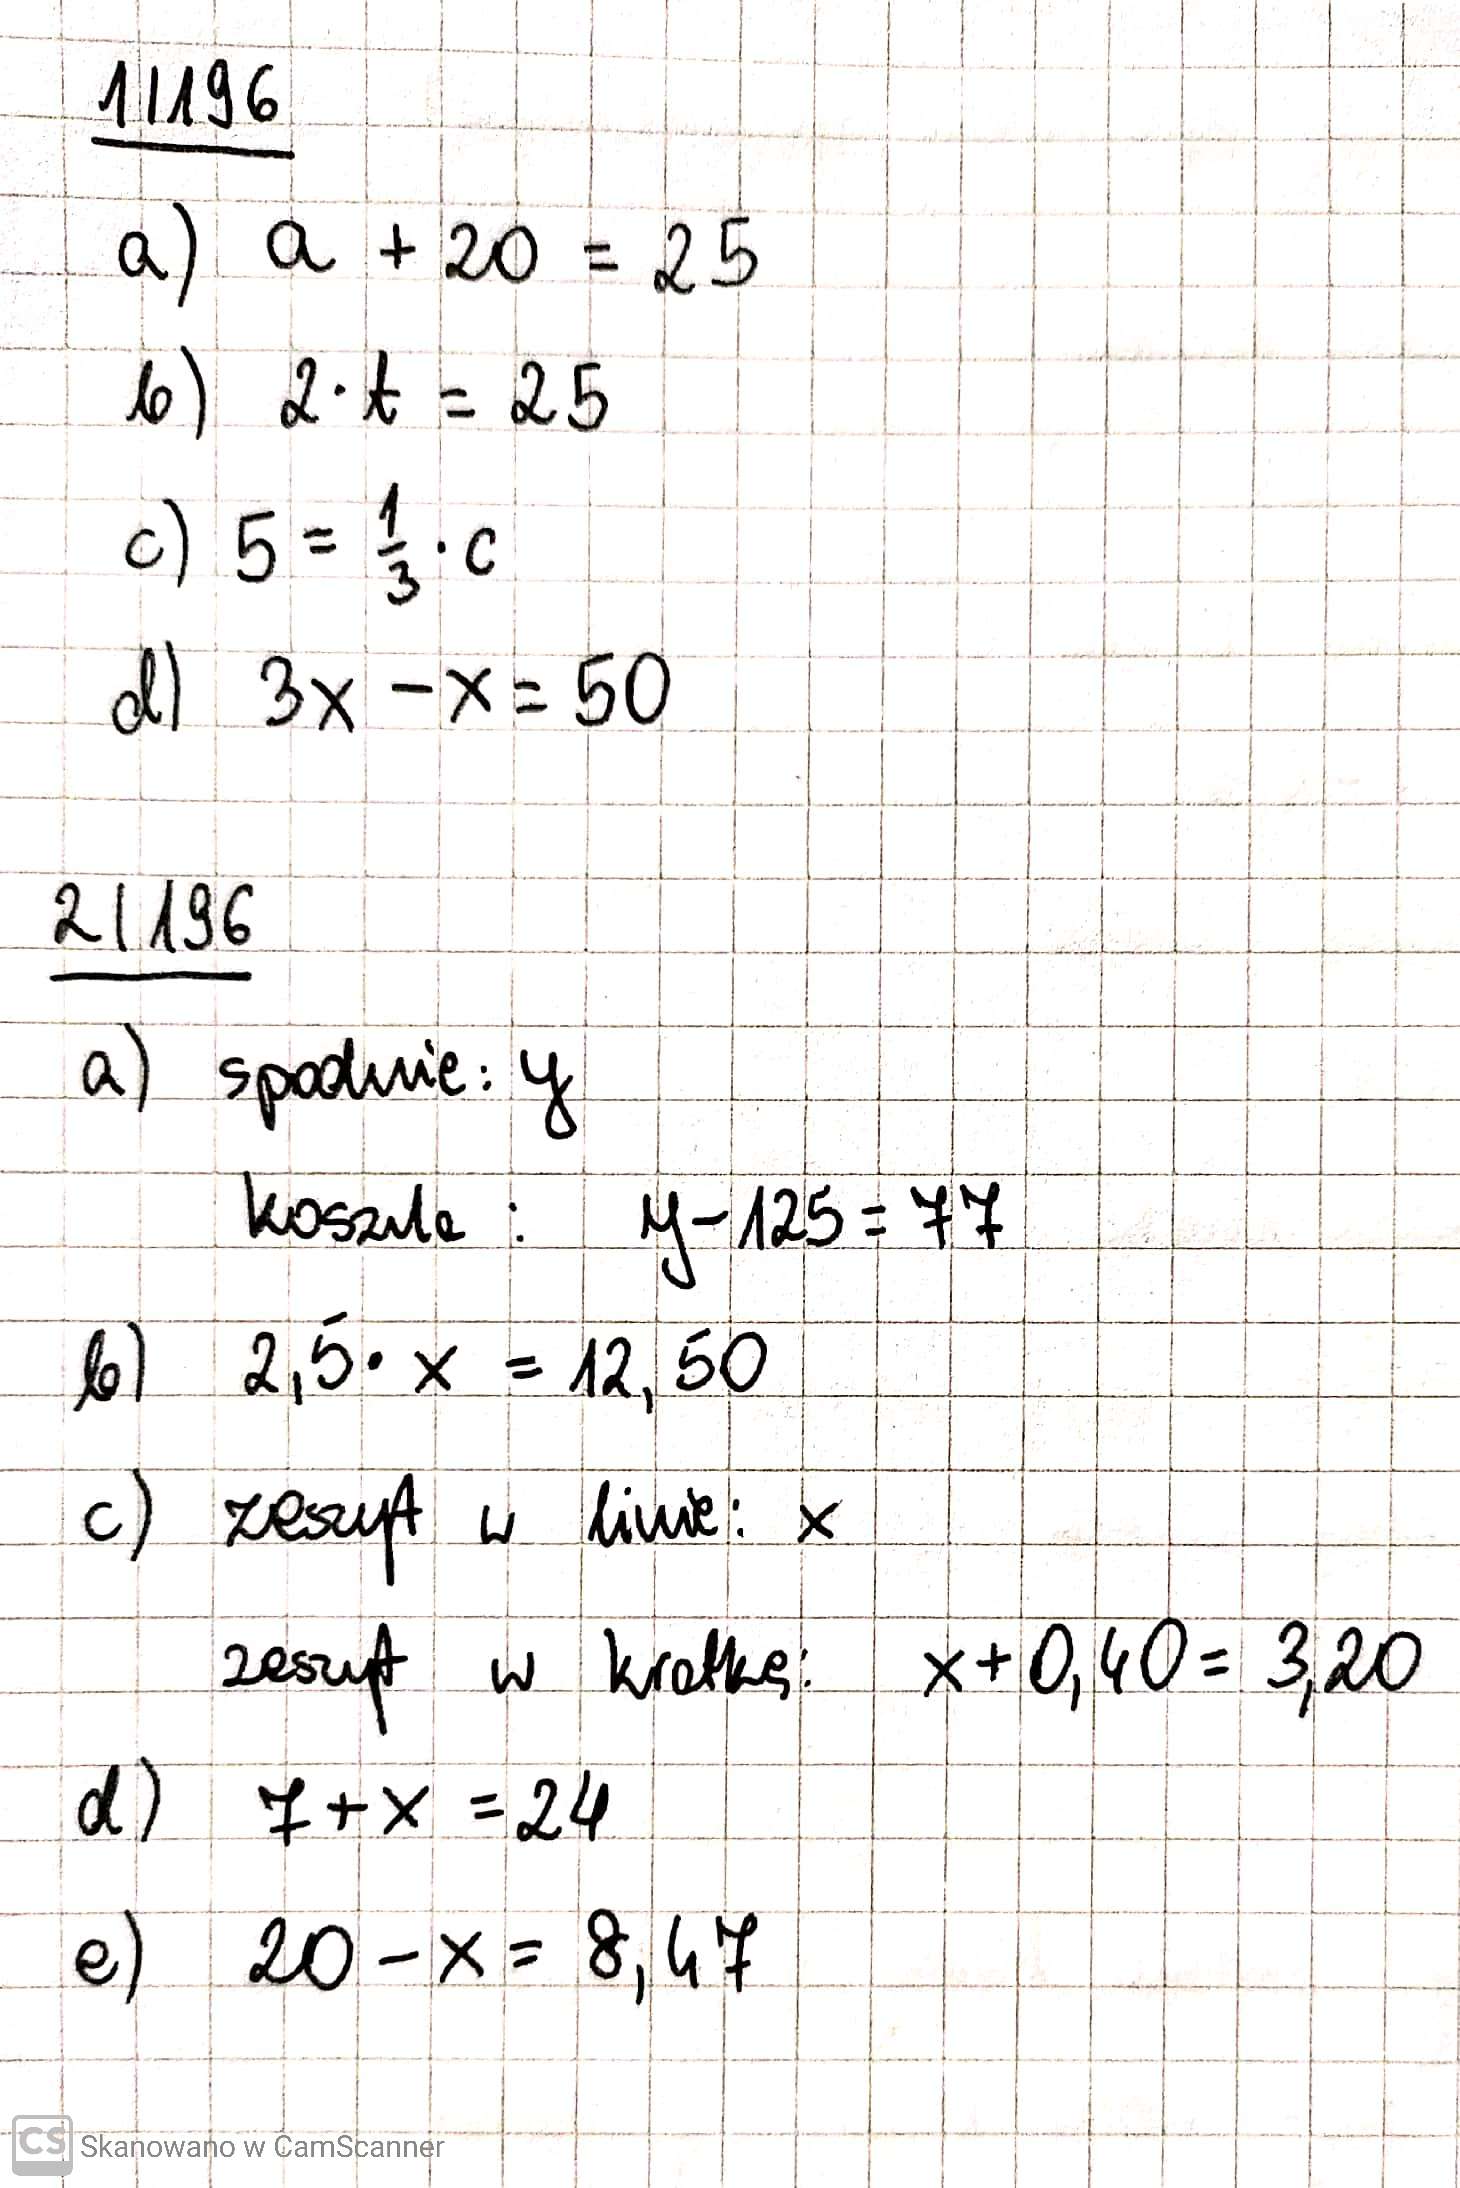 1/196
a) a + 20 = 25
b) 2·t = 25
c) 5 = 1/3 · c
d) 3x - x = 50
2/196
a) spodnie: y
koszula : y - 125 = 77
b) 2,5 · x = 12,50
c) zeszyt w linie: x
zeszyt w kratkę: x + 0,40 = 3,20
d) 7 + x = 24
e) 20 - x = 8,47
CS Skanowano w CamScanner